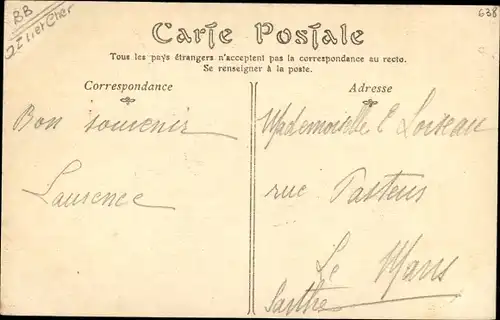 BB
638
Loir et Cher
Carte Postale
Tous les pays étrangers n'acceptent pas la correspondance au recto.
Se renseigner à la poste.
Correspondance
Bon souvenir
Laurence
Adresse
Mademoiselle E Loiseau
rue Pasteur
Le Mans
Sarthe